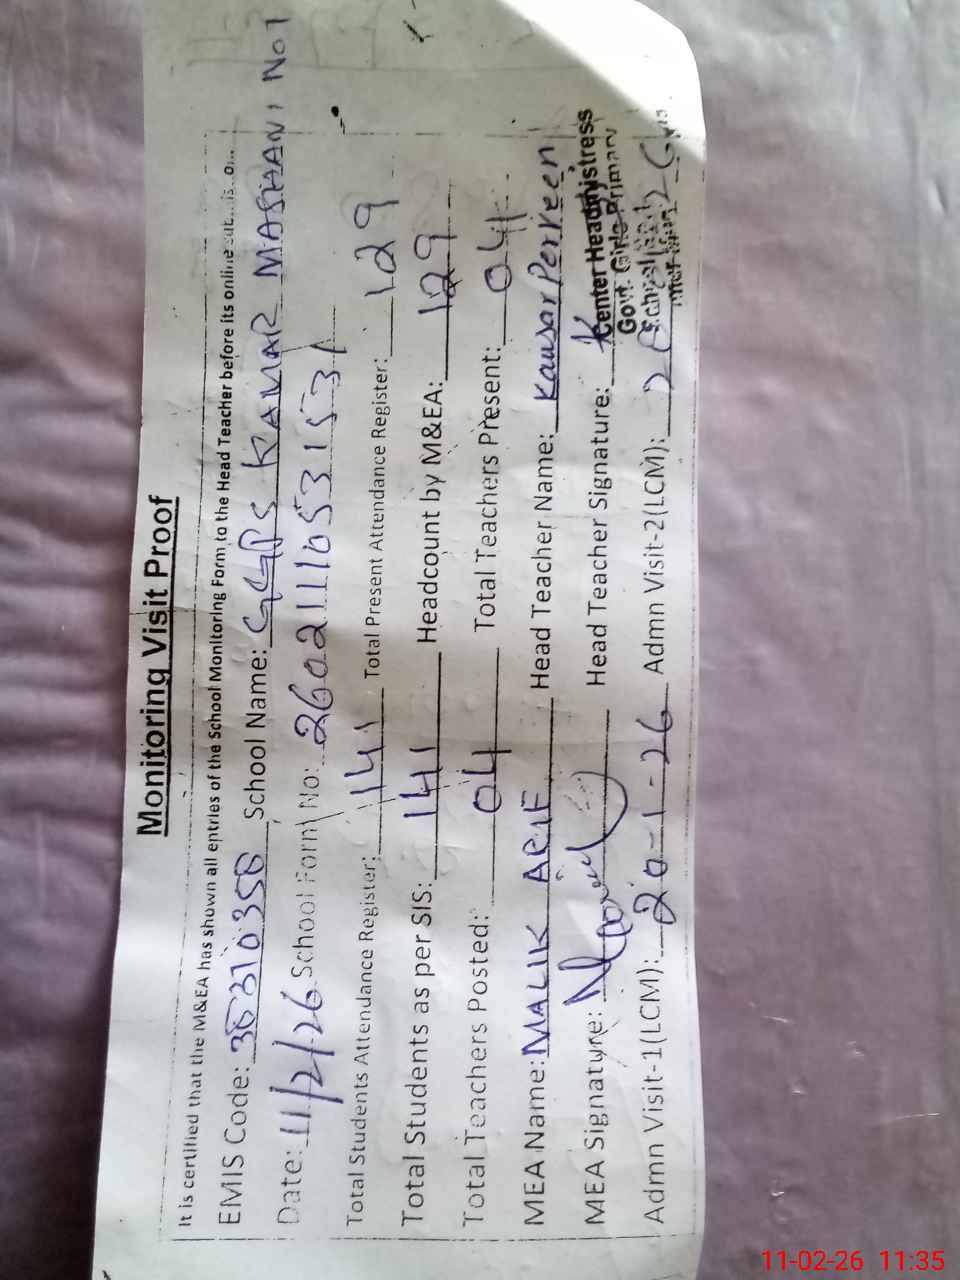 Monitoring Visit Proof
It is certified that the M&EA has shown all entries of the School Monitoring Form to the Head Teacher before its online
EMIS Code: 38310358 School Name: GGPS KAMAR MASHANI No1
Date: 11/2/26 School Form No: 260211105531531
Total Students Attendance Register: 141 Total Present Attendance Register: 129
Total Students as per SIS: 141 Headcount by M&EA: 129
Total Teachers Posted: 04 Total Teachers Present: 04
MEA Name: MALIK ARIF Head Teacher Name: Kausar Perveen
MEA Signature: Head Teacher Signature:
Center Headmistress
Govt. Girls Primary
School
Admn Visit-1(LCM): 20-1-26 Admn Visit-2(LCM):
11-02-26 11:35